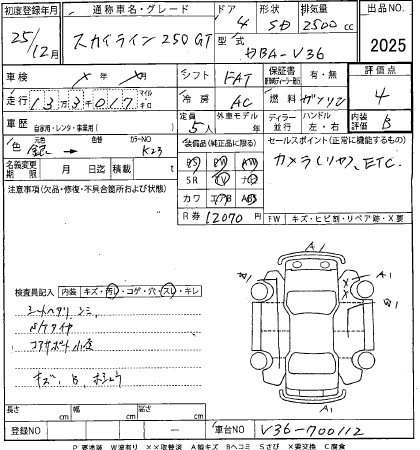 初度登録年月 通称車名・グレード ドア 形状 排気量 出品NO.
25/12月 スカイライン 250GT 4 SD 2500cc 2025
型式 DBA-V36
車検 × 年 × 月 シフト FAT 保証書 有・無 評価点
走行 1 3 万 3 千 0 1 7 マイル キロ 冷房 AC 燃料 ガソリン 4
車歴 自家用・レンタ・事業用( ) 定員 5人 外車モデル 年 ディーラー 並行 ハンドル 左・右 内装評価 B
色 元色 銀 色替 カラーNO K23 装備品(純正品に限る) セールスポイント(正常に機能するもの)
PS PW AW カメラ(リヤ)、ETC.
名義変更期限 月 日迄 積載 t SR TV ナビ
注意事項(欠品・修復・不具合箇所および状態) カワ エアB ABS
R券 12070円 FW キズ・ヒビ割・リペア跡・X要
A1
A1
A1
検査員記入 内装 キズ・汚レ・コゲ・穴・スレ・キレ
キズ、B
長さ cm 幅 cm 高さ cm
登録NO ー 車台NO V36-700112
P 要塗装 W波有り ××取替済 A線キズ Bヘコミ Sさび ×要交換 C腐食